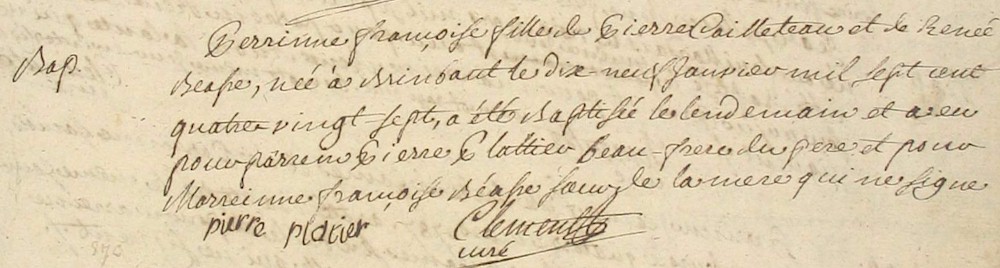 Perrinne françoise fille de Pierre Cailleteau et de Renée
Bap.
Béasse, née à Brinbaut le dix-neuf Janvier mil sept cent
quatre vingt-sept, a été Baptisée le lendemain et a eu
pour parrein Pierre Platier beau-frere du pere et pour
Marreinne françoise Béasse soeur de la mere qui ne signe
pierre platier Clement
curé